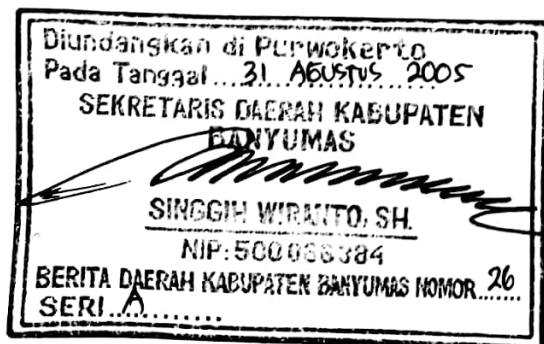 Diundangkan di Purwokerto
Pada Tanggal...31 AGUSTUS 2005
SEKRETARIS DAERAH KABUPATEN
BANYUMAS
SINGGIH WIRANTO, SH.
NIP:
BERITA DAERAH KABUPATEN BANYUMAS NOMOR 26
SERI...A.........